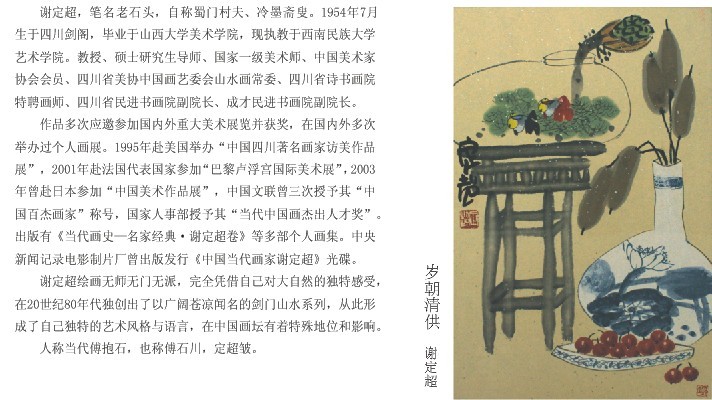 谢定超，笔名老石头，自称蜀门村夫、冷墨斋叟。1954年7月
生于四川剑阁，毕业于山西大学美术学院，现执教于西南民族大学
艺术学院。教授、硕士研究生导师、国家一级美术师、中国美术家
协会会员、四川省美协中国画艺委会山水画常委、四川省诗书画院
特聘画师、四川省民进书画院副院长、成才民进书画院副院长。
作品多次应邀参加国内外重大美术展览并获奖，在国内外多次
举办过个人画展。1995年赴美国举办“中国四川著名画家访美作品
展”，2001年赴法国代表国家参加“巴黎卢浮宫国际美术展”，2003
年曾赴日本参加“中国美术作品展”，中国文联曾三次授予其“中
国百杰画家”称号，国家人事部授予其“当代中国画杰出人才奖”。
出版有《当代画史—名家经典·谢定超卷》等多部个人画集。中央
新闻记录电影制片厂曾出版发行《中国当代画家谢定超》光碟。
谢定超绘画无师无门无派，完全凭借自己对大自然的独特感受，
在20世纪80年代独创出了以广阔苍凉闻名的剑门山水系列，从此形
成了自己独特的艺术风格与语言，在中国画坛有着特殊地位和影响。
人称当代傅抱石，也称傅石川，定超皱。
岁朝清供 谢定超